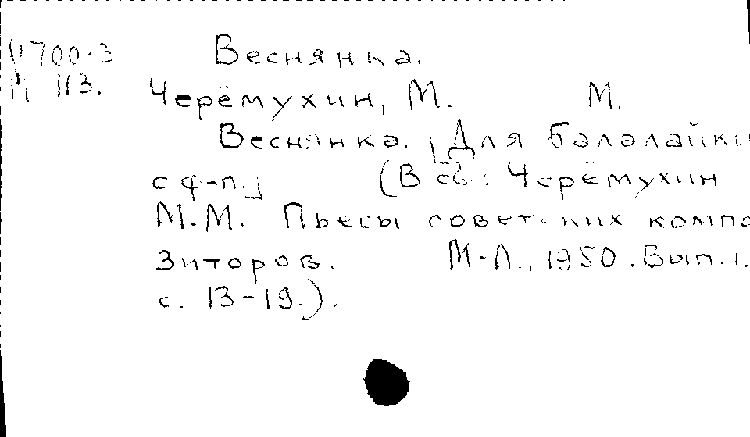 Веснянка.
113.
Черёмухин, М. М.
Веснянка. [Для балалайки
с ф-п.] (В сб.: Черёмухин
М.М. Пьесы советских компо
зиторов. М-Л., 1950. Вып. 1.
с. 13-19.).